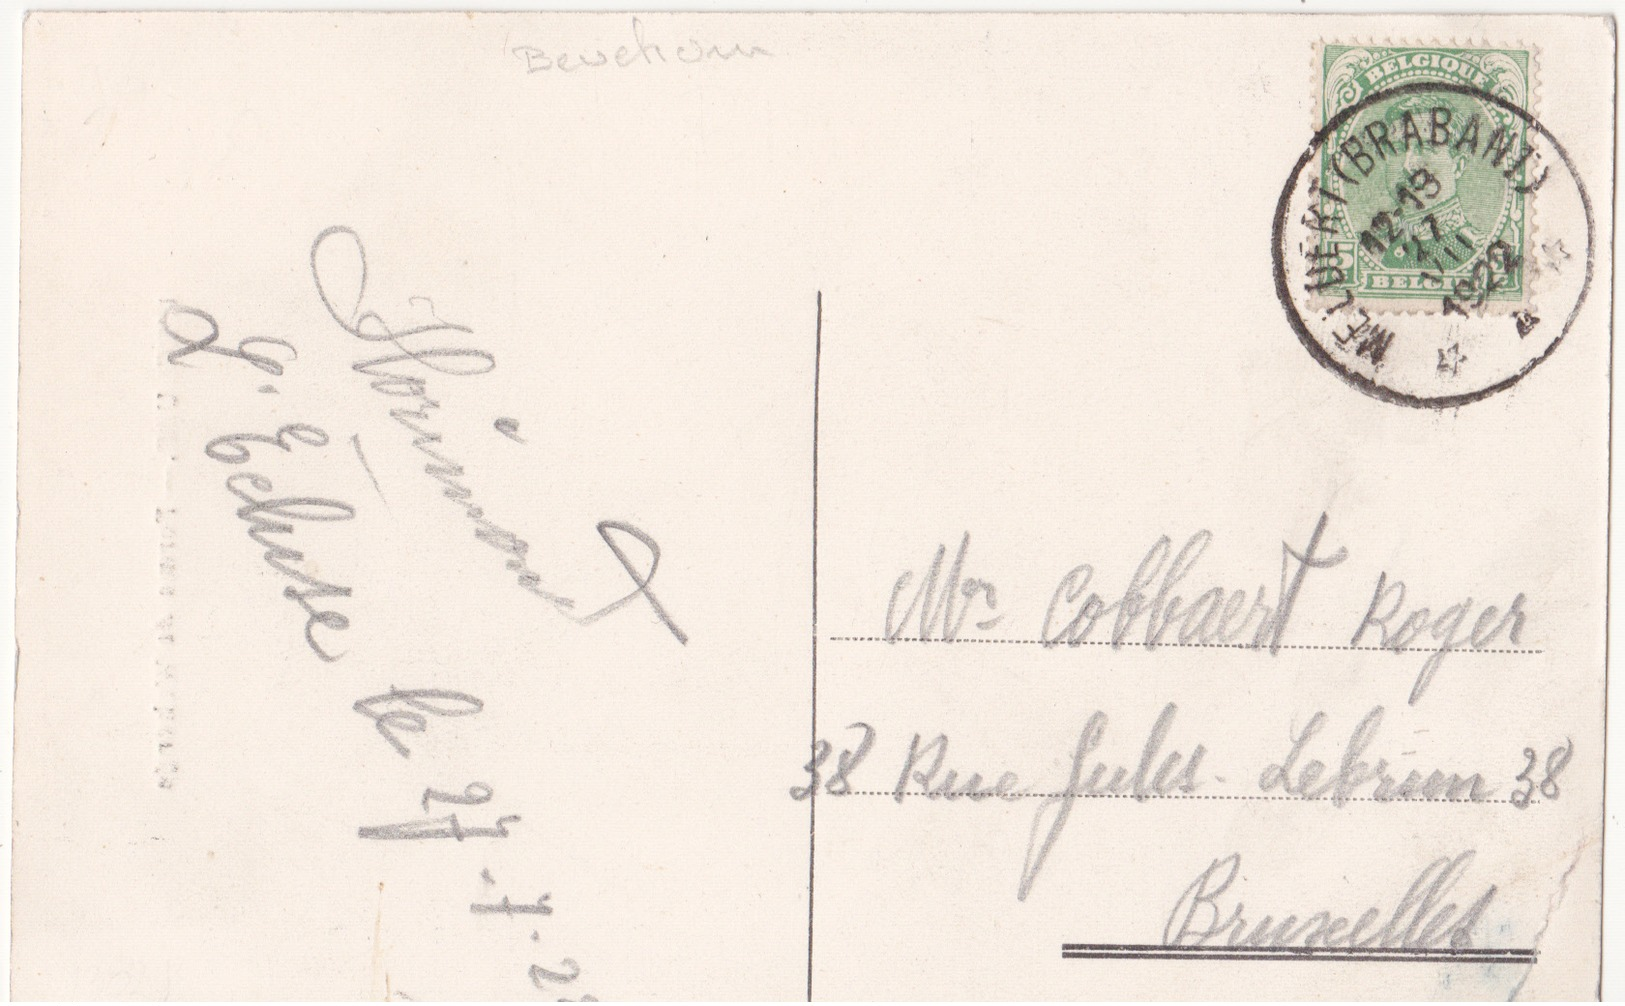 BELGIQUE
5
BELGIE
MELDERT (BRABANT)
12-13
27
VII
1922
L. Echuse le 27.7.2
Mr Cobbaert Roger
38 Rue Jules Lebrun 38
Bruxelles